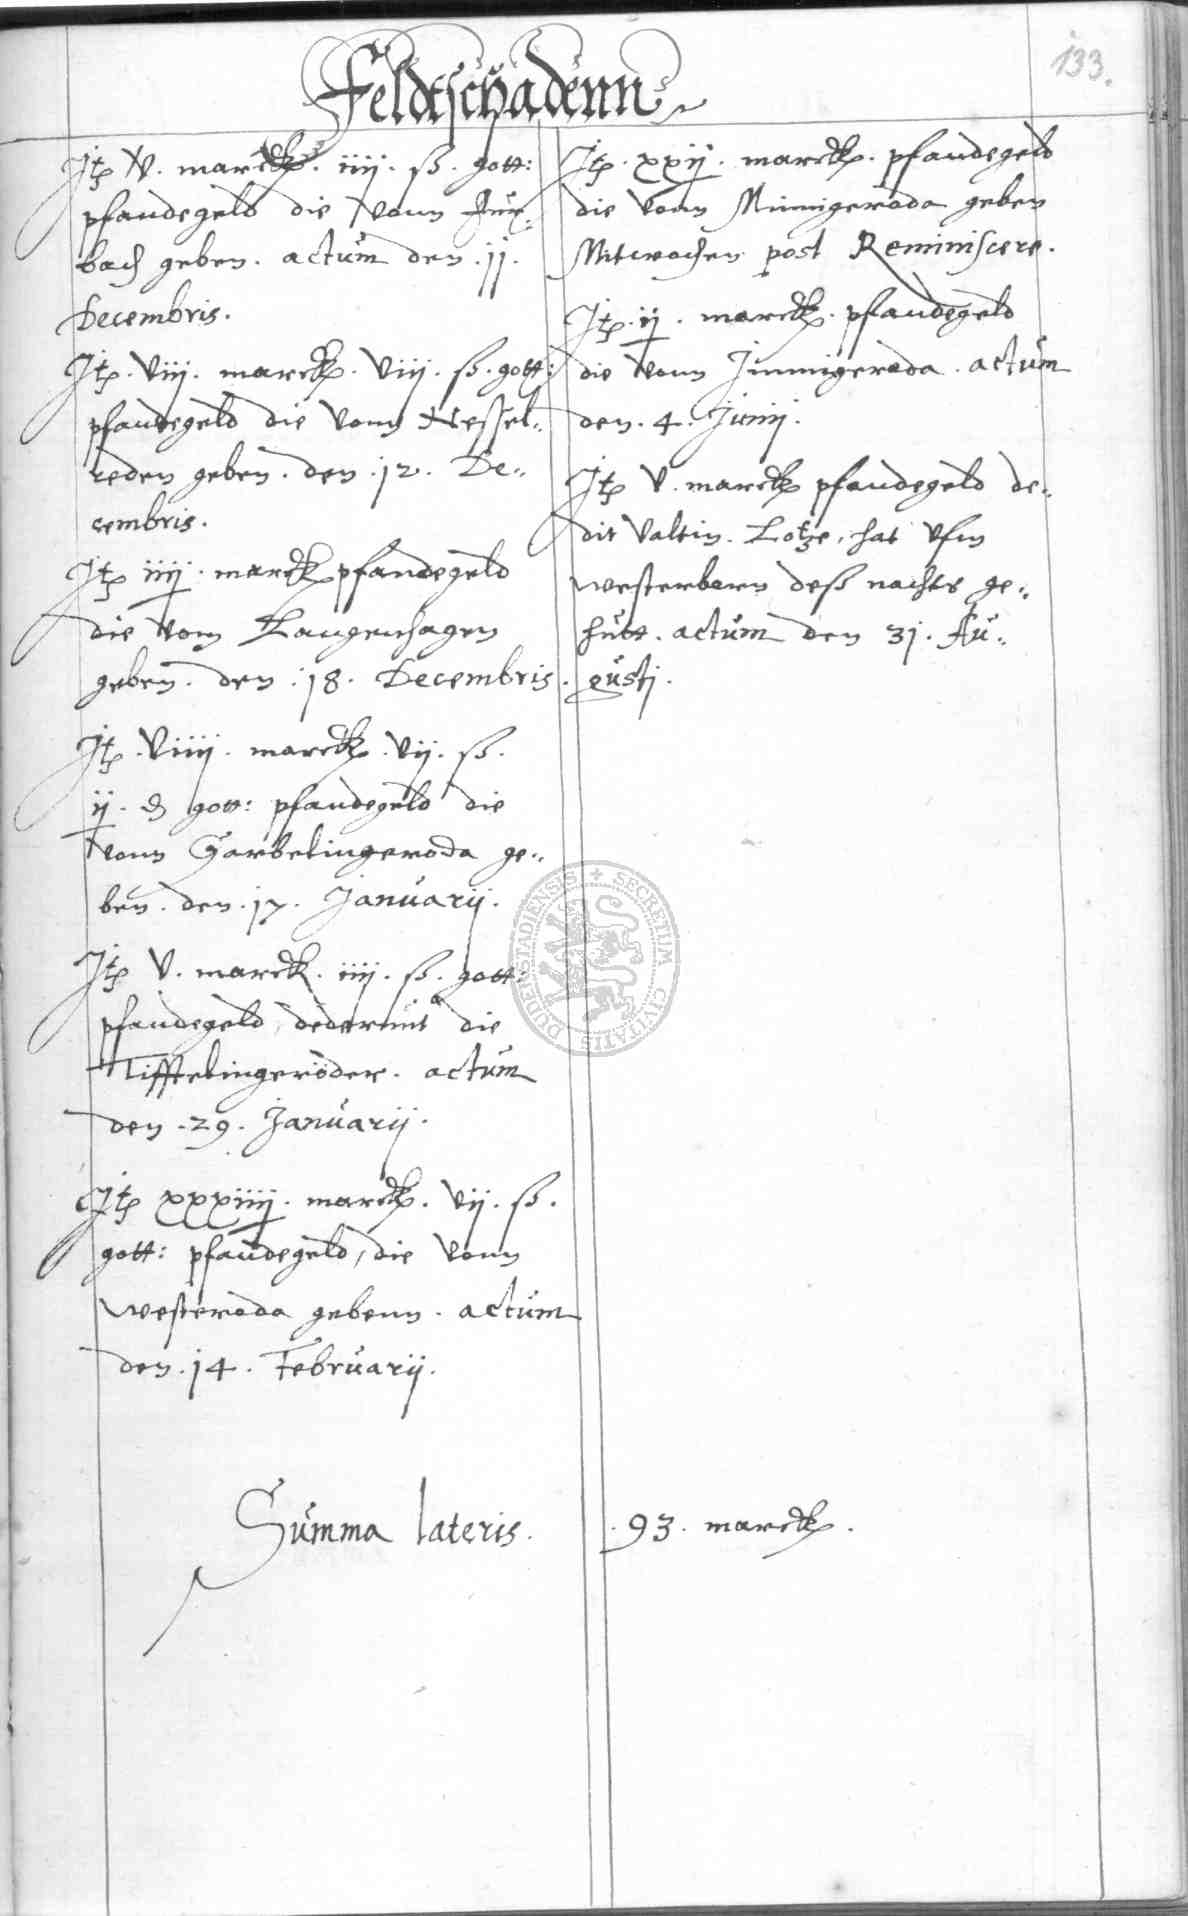 133.
Feldtschadenn
Itz v. marck. iiij. ß. gott:
pfandegeld die vonn Fur-
bach geben. actum den .11.
Decembris.
Itz. viij. marck. viij. ß. gott:
pfandegeld die vonn Nessel-
reden geben. den .12. De-
cembris.
Itz iiij. marck pfandegeld
die vom Langenhagen
geben. den .18. Decembris.
Itz. viiij. marck. vij. ß.
ij. ₰ gott: pfandegeld die
vonn Garbelingeroda ge-
ben. den .17. Januarij.
Itz v. marck. iiij. ß. gott:
pfandegeld dederunt die
Tifftelingeröder. actum
den .29. Januarij.
Itz xxxiiij. marck. vij. ß.
gott: pfandegeld, die vonn
Westeroda gebenn. actum
den .14. Februarij.
Itz. xxij. marck. pfandegeld
die vonn Minnigeroda geben
Mitwochen post Reminiscere.
Itz. ij. marck. pfandegeld
die vonn Immigeroda. actum
den .4. Junij.
Itz v. marck pfandegeld de-
dit Valtin. Lotze, hat vfm
westerborn deß nachts ge-
hutt. actum den 31. Au-
gusti.
Summa lateris. .93. marck.
SECRETUM CIVITATIS DUDENSTADIENSIS